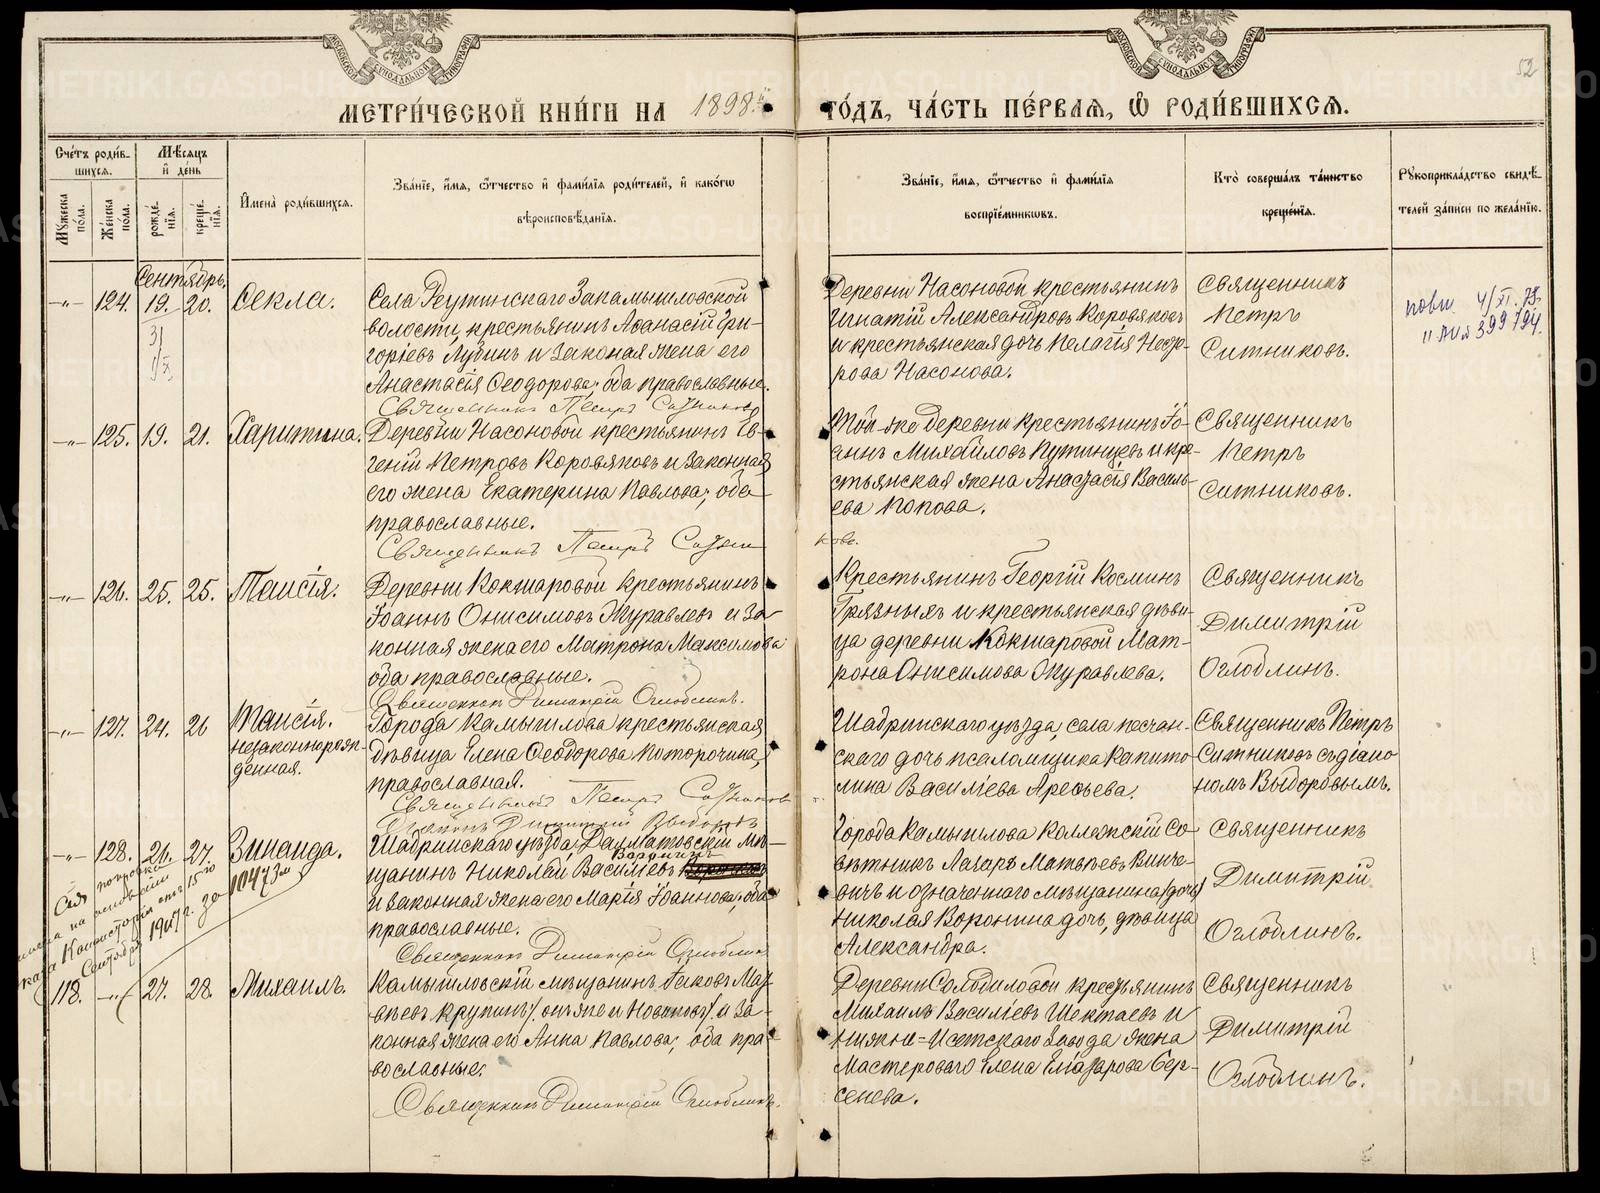 МЕТРИ́ЧЕСКОЙ КНИ́ГИ НА 1898.й ГО́ДЪ, ЧА́СТЬ ПЕ́РВАЯ, Ѡ РОДИ́ВШИХСЯ.
52
Сче́тъ роди́в-
шихся.
Му́жеска по́ла.
Же́нска по́ла.
Мѣ́сяцъ
и҆ де́нь
рожде́нїя.
креще́нїя.
И҆мена̀ роди́вшихся.
Зва́нїе, и҆́мя, ѻ҆́тчество и҆ фами́лїя роди́телей, и҆ како́гѡ
вѣроисповѣ́данїя.
Зва́нїе, и҆́мя, ѻ҆́тчество и҆ фами́лїя
воспрїе́мниковъ.
Кто̀ соверша́лъ та́инство
креще́нїя.
Рꙋкоприкла́дство свидѣ́-
телей за́писи по жела́нїю.
Сентябрь.
—„— 124. 19. 20. Ѳекла.
Села Реутинскаго Закамышловской
волости, крестьянинъ Аѳанасій Гри-
горіевъ Лубинъ и законая жена его
Анастасія Ѳеодорова; оба православные.
Священникъ Петръ Ситниковъ
Деревни Насоновой крестьянинъ
Игнатій Александровъ Коровяковъ
и крестьянская дочь Пелагія Ѳеодо-
рова Насонова.
Священникъ
Петръ
Ситниковъ.
—„— 125. 19. 21. Харитина.
Деревни Насоновой крестьянинъ Ев-
геній Петровъ Коровяковъ и законная
его жена Екатерина Павлова; оба
православные.
Священникъ Петръ Ситни
ковъ.
Той-же деревни крестьянинъ Іо-
аннъ Михайловъ Путинцевъ и кре-
стьянская жена Анастасія Василь-
ева Попова.
Священникъ
Петръ
Ситниковъ.
—„— 126. 25. 25. Таисія.
Деревни Кокшаровой крестьянинъ
Іоаннъ Онисимовъ Журавлевъ и за-
конная жена его Матрона Максимова
оба православные.
Священникъ Димитрій Оглоблинъ.
Крестьянинъ Георгій Косминъ
Грязныхъ и крестьянская дѣви-
ца деревни Кокшаровой Мат-
рона Онисимова Журавлева.
Священникъ
Димитрій
Оглоблинъ.
—„— 127. 24. 26 Таисія.
незаконнорож-
денная.
Города Камышлова крестьянская
дѣвица Елена Ѳеодорова Поторочина,
православная.
Священникъ Петръ Ситниковъ
Діаконъ Димитрій Выдоровъ
Шадринскаго уѣзда, села песчан-
скаго дочь псаломщика Капито-
лина Василіева Арефьева.
Священникъ Петръ
Ситниковъ съ діако
номъ Выдоровымъ.
—„— 128. 26. 27. Зинаида.
Шадринскаго уѣзда, Далматовскій мѣ-
Воронинъ
щанинъ Николай Василіевъ
и законная жена его Марія Іоаннова; оба
православные.
Священникъ Димитрій Оглоблин
Города Камышлова Коллежскій Со-
вѣтникъ Лазарь Матвѣевъ Винче-
вичъ и означеннаго мѣщанина (дочь)
Николая Воронина дочь, дѣвица
Александра.
Священникъ
Димитрій
Оглоблинъ.
Сія поправка
Консисторіи отъ 15го
Сентября 1907 г. за 10473м
118. —„— 27. 28. Михаилъ.
Камышловскій мѣщанинъ Іаковъ Мат-
вѣевъ Крупинъ (онъ же и Новиковъ) и за-
конная жена его Анна Павлова; оба пра-
вославные.
Священникъ Димитрій Оглоблинъ.
Деревни Солодиловой крестьянинъ
Михаилъ Василіевъ Шектаевъ и
нижне-Исетскаго завода жена
мастероваго Елена Елиазарова Бер-
сенева.
Священникъ
Димитрій
Оглоблинъ.